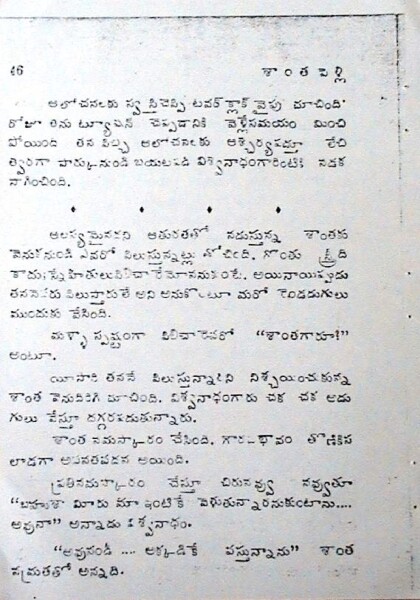 46 శాంత పెళ్లి
ఆలోచనలకు స్వస్తిచెప్పి టవర్ క్లాక్ వైపు చూచింది
రోజూ తను ట్యూషన్ చెప్పడానికి వెళ్లేసమయం మించి
పోయింది తన పిచ్చి ఆలోచనలకు ఆశ్చర్యపడ్తూ లేచి
త్వరగా పార్కునుండి బయటపడి విశ్వనాధంగారింటికి నడక
సాగించింది.
ఆలస్యమైనదని ఆతురతతో నడుస్తున్న శాంతకు
వెనుకనుండి ఎవరో పిలుస్తున్నట్లు తోచింది. గొంతు స్త్రీది
కాదు; స్నేహితులు పిలిచారేమోననుకుంటే. అయినాయిప్పుడు
తననెవరు పిలుస్తారులే అని అనుకొంటూ మరో రెండడుగులు
ముందుకు వేసింది.
మళ్ళా స్పష్టంగా పిలిచారెవరో "శాంతగారూ!"
అంటూ.
యీసారి తననే పిలుస్తున్నారని నిశ్చయించుకున్న
శాంత వెనుదిరిగి చూచింది. విశ్వనాధంగారు చక చక అడు
గులు వేస్తూ దగ్గరపడుతున్నారు.
శాంత నమస్కారం చేసింది. గౌరవభావం తొణికిస
లాడగా అవనతవదన అయింది.
ప్రతినమస్కారం చేస్తూ చిరునవ్వు నవ్వుతూ
"బహుశా మీరు మా ఇంటికే వెళుతున్నారనుకుంటాను....
అవునా" అన్నాడు విశ్వనాధం.
"అవునండీ .... అక్కడికే వస్తున్నాను" శాంత
నమ్రతతో అన్నది.